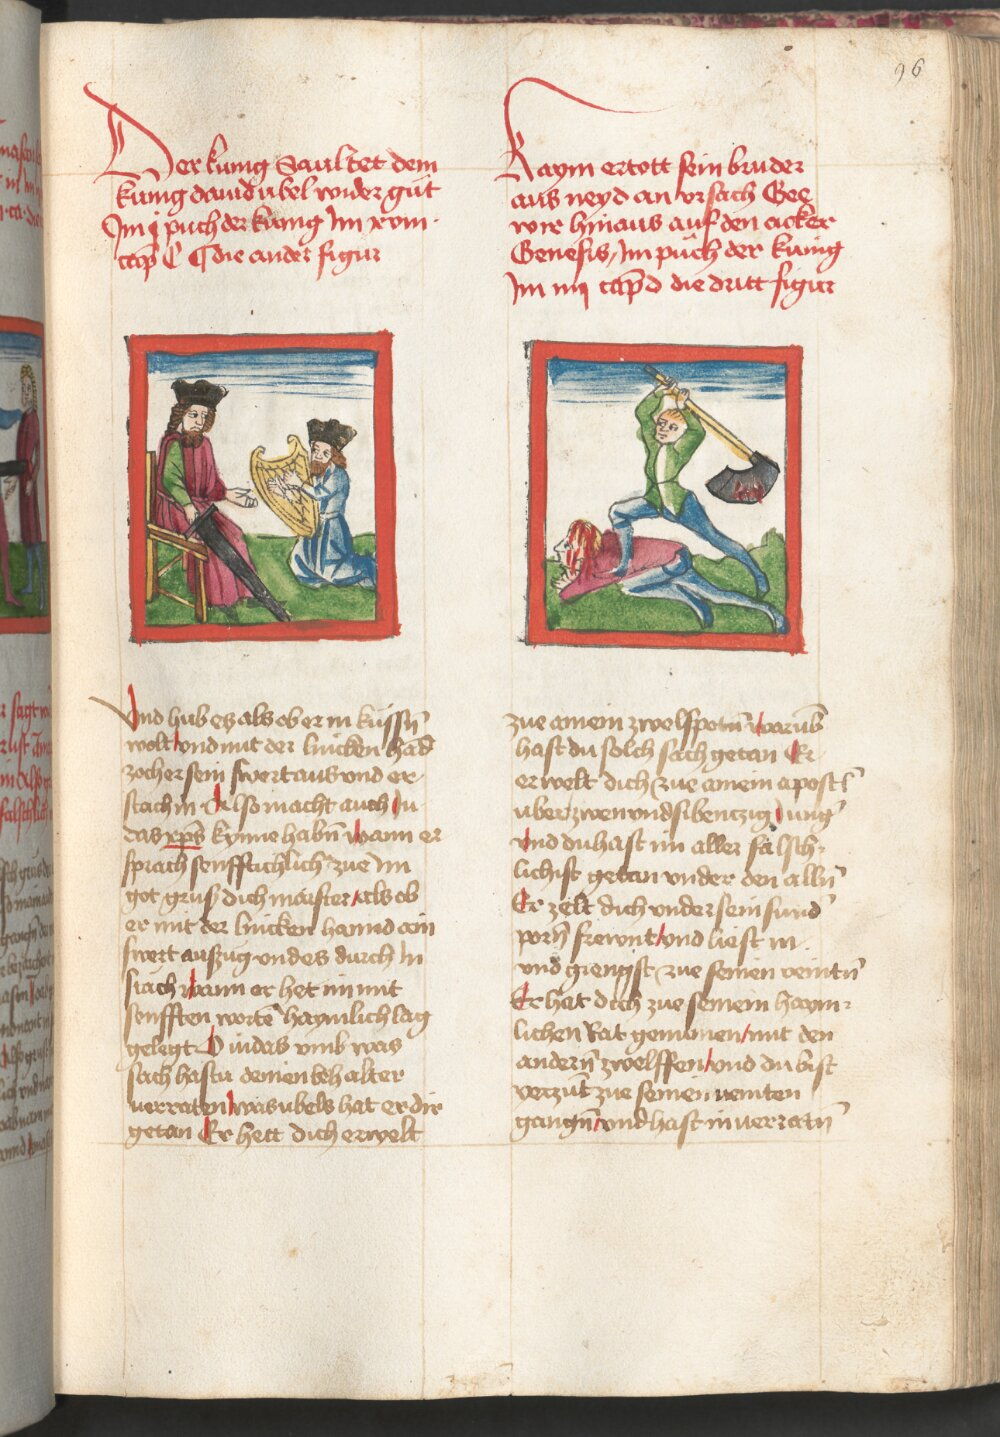 96
Der kunig Saul tet dem
kunig dauid ubel wider gut
Im j puch der kunig Im xviii.
cap C die ander figur
Kaym ertott sein bruder
aus neyd an ursach Gee
wir hinaus auf den acker
Genesis, Im puch der kunig
Im iiij cap d die dritt figur
Und hub es als ob er in kussn̄
wolt vnd mit der lincken had
zoch er sein swert aus vnd er
stach in Also macht auch Ju
das xp̄s kynne habn̄ wann er
sprach senfftichlich zue Im
got grus dich maister als ob
er mit der lincken hannd ain
swert auszug vnd es durch In
stach wann er het im mit
senfften worte haymlich lag
gelegt O Judas vmb was
sach hastu deinen behalter
verraten was ubels hat er dir
getan Er hett dich erwelt
zue ainem zwelfpotn̄ warub
hast du solch sach getan Er
erwelt dich zue ainem apostl
uber zwen vnd sibenczig Jung
vnd du hast im aller fälsch
lichist getan vnder den alln̄
Er zelt dich vnder sein sund
porn̄ frewnt vnd liest in
vnd giengst zue seinen veintn̄
Er hat dich zue seinem haym
lichen Rat genumen mit den
andern̄ zwelffen vnd du bist
verzut zue seinen veinten
gangn̄ vnd hast in verratn̄